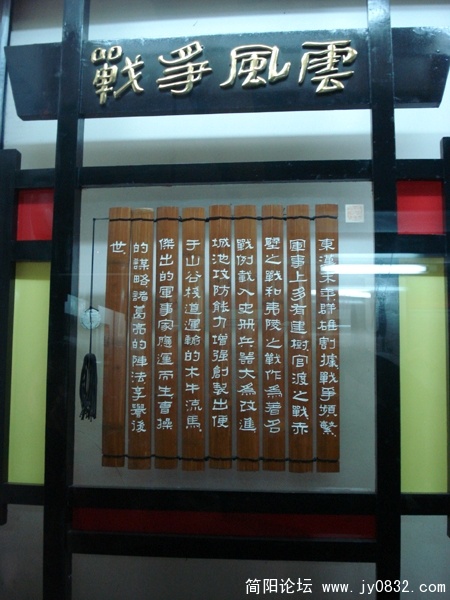 戰爭風雲
東漢末年群雄割據戰爭頻繁.
軍事上多有建樹官渡之戰赤
壁之戰和夷陵之戰作爲著名
戰例載入史冊兵器大爲改進
城池攻防能力增強創製出便
于山谷棧道運輸的木牛流馬.
傑出的軍事家應運而生曹操
的謀略諸葛亮的陣法享譽後
世.
简阳论坛 www.jy0832.com